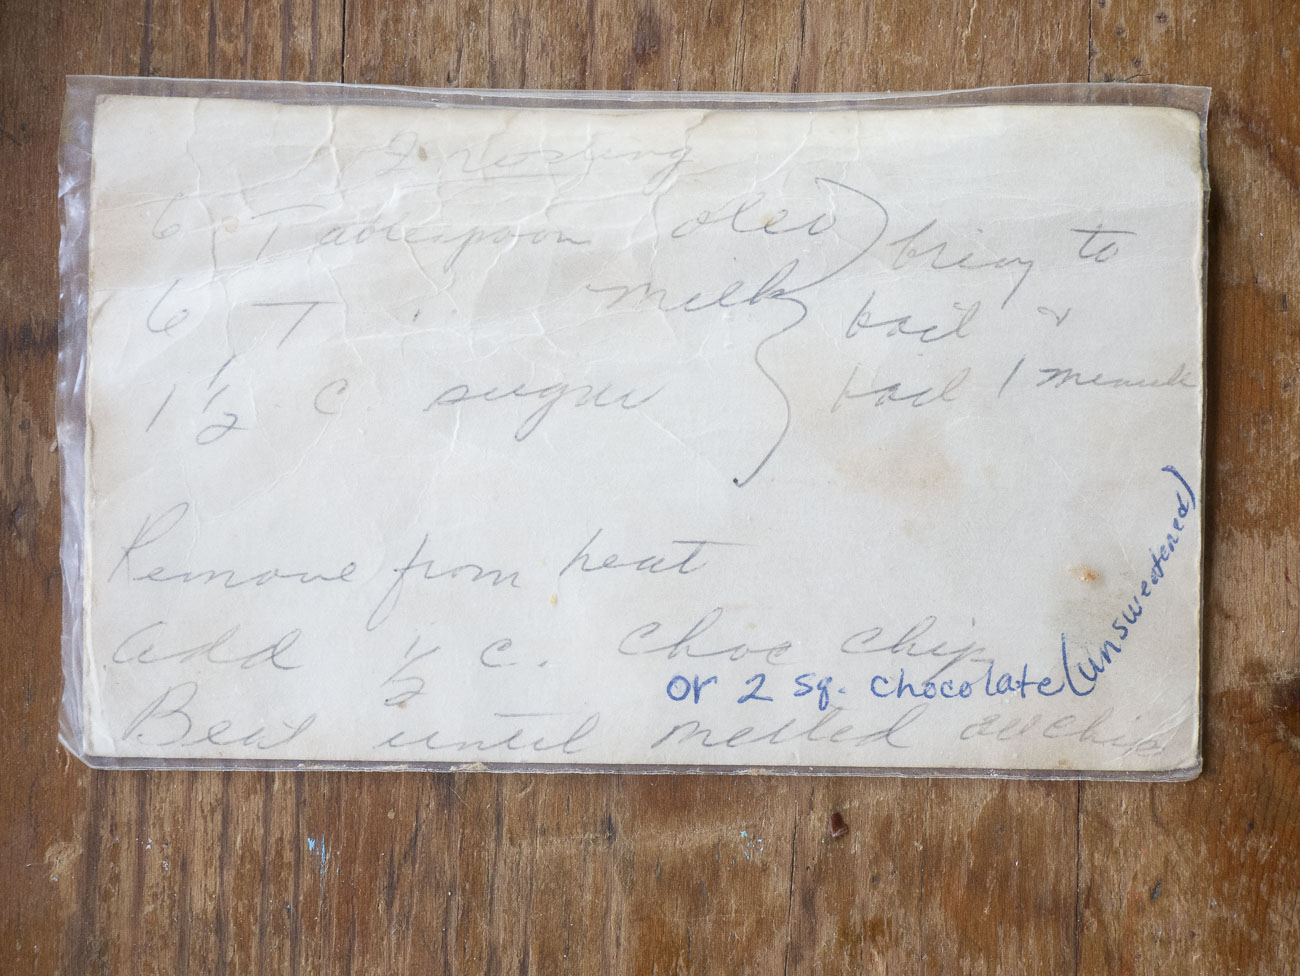 Frosting
6 Tablespoon oleo
6 T " milk
1 1/2 c. sugar
bring to
boil &
boil 1 minute
Remove from heat
add 1/2 c. choc chip
or 2 sq. chocolate (unsweetened)
Beat until melted all chips